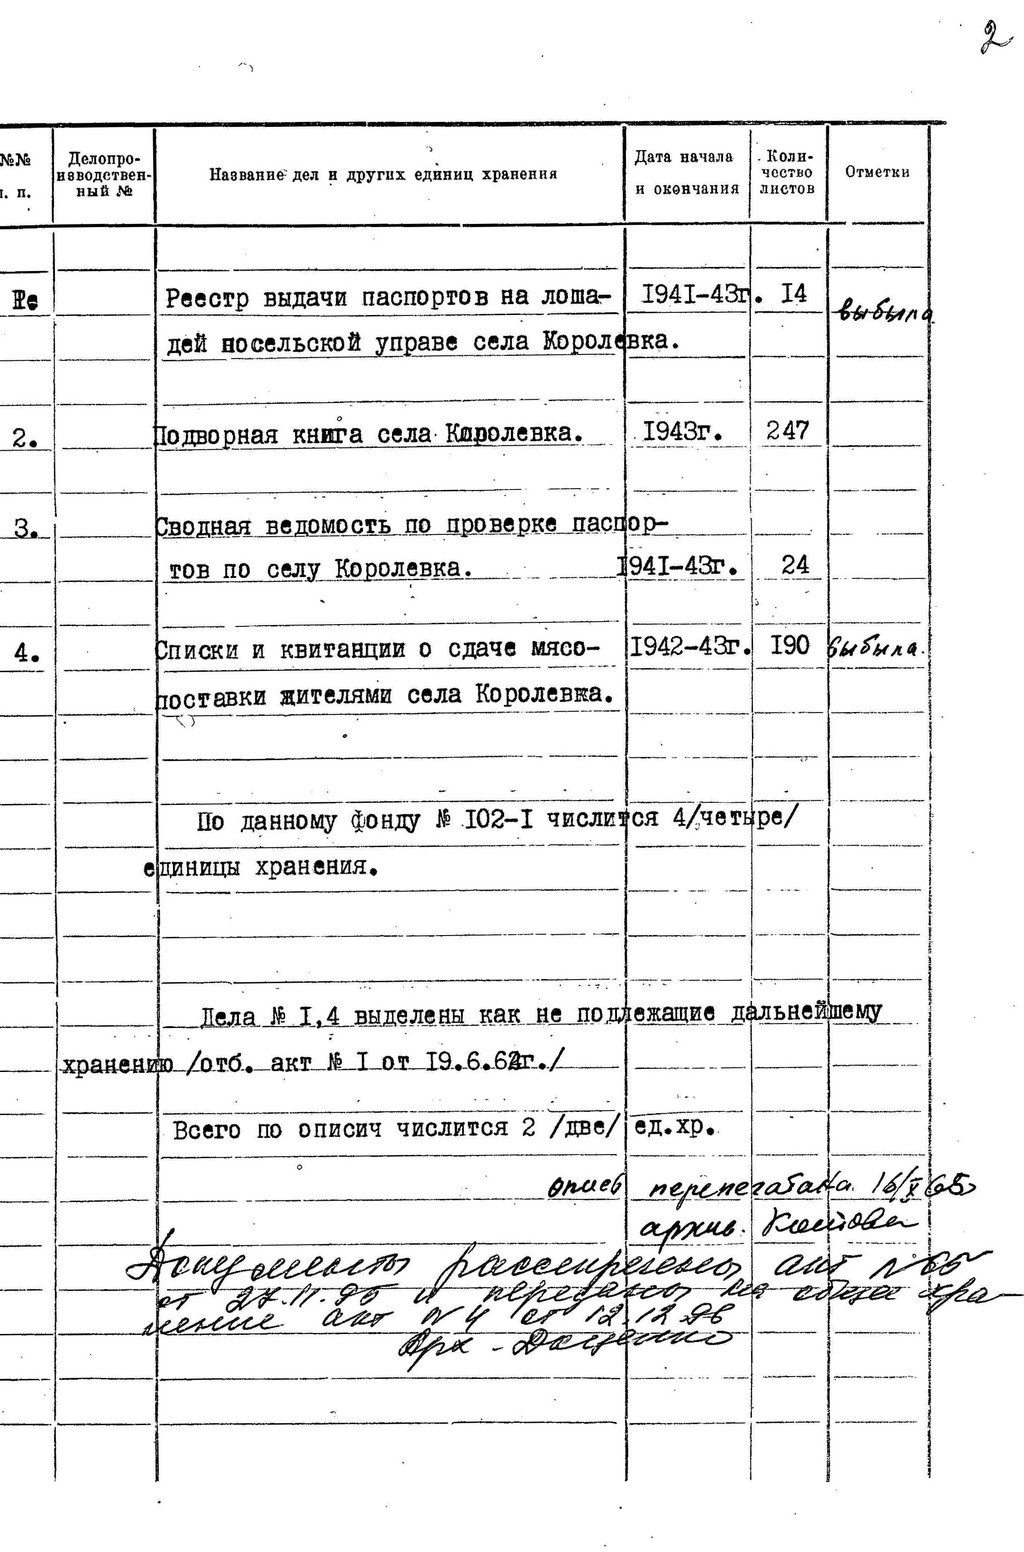 2
№№ п. п.
Делопро-
изводствен-
ный №
Название дел и других единиц хранения
Дата начала
и окончания
Коли-
чество
листов
Отметки
Реестр выдачи паспортов на лоша- 1941-43г. 14 выбыла
дей посельской управе села Королевка.
2. Подворная книга села Королевка. 1943г. 247
3. Сводная ведомость по проверке паспор-
тов по селу Королевка. 1941-43г. 24
4. Списки и квитанции о сдаче мясо- 1942-43г. 190 выбыла.
поставки жителями села Королевка.
По данному фонду № 102-I числится 4/четыре/
единицы хранения.
Дела № I,4 выделены как не подлежащие дальнейшему
хранению /отб. акт № I от 19.6.62г./
Всего по описич числится 2 /две/ ед.хр.
опись перепечатана 16/X 65
архив.
Документы рассекречены акт N 65
от 27.11.95 и переданы на общее хра-
нение акт N 4 от 12.12.96
Арх - Доценко